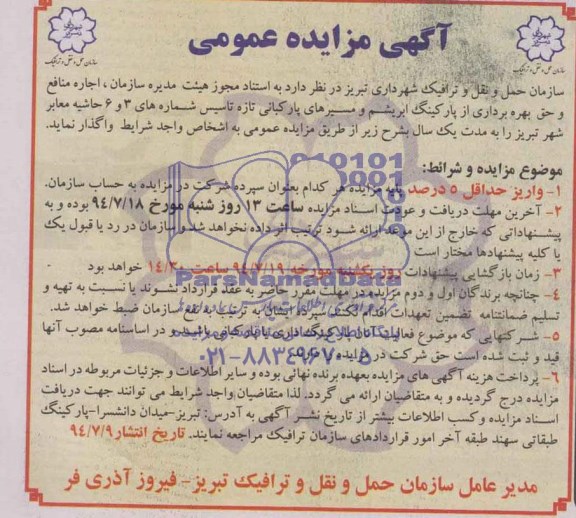 آگهی مزایده عمومی
سازمان حمل و نقل و ترافیک
سازمان حمل و نقل و ترافیک
سازمان حمل و نقل و ترافیک شهرداری تبریز در نظر دارد به استناد مجوز هیئت مدیره سازمان ، اجاره منافع
و حق بهره برداری از پارکینگ ابریشم و مسیرهای پارکبانی تازه تاسیس شماره های ۳ و ۶ حاشیه معابر
شهر تبریز را به مدت یک سال بشرح زیر از طریق مزایده عمومی به اشخاص واجد شرایط واگذار نماید.
موضوع مزایده و شرائط:
۱- واریز حداقل ۵ درصد پایه مزایده هر کدام بعنوان سپرده شرکت در مزایده به حساب سازمان.
۲- آخرین مهلت دریافت و عودت اسناد مزایده ساعت ۱۳ روز شنبه مورخ ۹۴/۷/۱۸ بوده و به
پیشنهاداتی که خارج از این موعد ارائه شود ترتیب اثر داده نخواهد شد و سازمان در رد یا قبول یک
یا کلیه پیشنهادها مختار است
۳- زمان بازگشایی پیشنهادات روز یکشنبه مورخه ۹۴/۷/۱۹ ساعت ۱۴/۳۰ خواهد بود
۴- چنانچه برندگان اول و دوم مزایده در مهلت مقرر حاضر به عقد قرارداد نشوند یا نسبت به تهیه و
تسلیم ضمانتنامه تضمین تعهدات اقدام نکنند سپرده ایشان به ترتیب به نفع سازمان ضبط خواهد شد.
۵- شرکتهایی که موضوع فعالیت آنان پارکینگ داری یا پارکبانی باشد و در اساسنامه مصوب آنها
قید و ثبت شده است حق شرکت در مزایده را دارند
۶- پرداخت هزینه آگهی های مزایده بعهده برنده نهائی بوده و سایر اطلاعات و جزئیات مربوطه در اسناد
مزایده درج گردیده و به متقاضیان ارائه می گردد. لذا متقاضیان واجد شرایط می توانند جهت دریافت
اسناد مزایده و کسب اطلاعات بیشتر از تاریخ نشر آگهی به آدرس: تبریز-میدان دانشسرا-پارکینگ
طبقاتی سهند طبقه آخر امور قراردادهای سازمان ترافیک مراجعه نمایند. تاریخ انتشار ۹۴/۷/۹
مدیر عامل سازمان حمل و نقل و ترافیک تبریز- فیروز آذری فر
ParsNamadData
۰۲۱-۸۸۳۴۹۶۷۰-۵